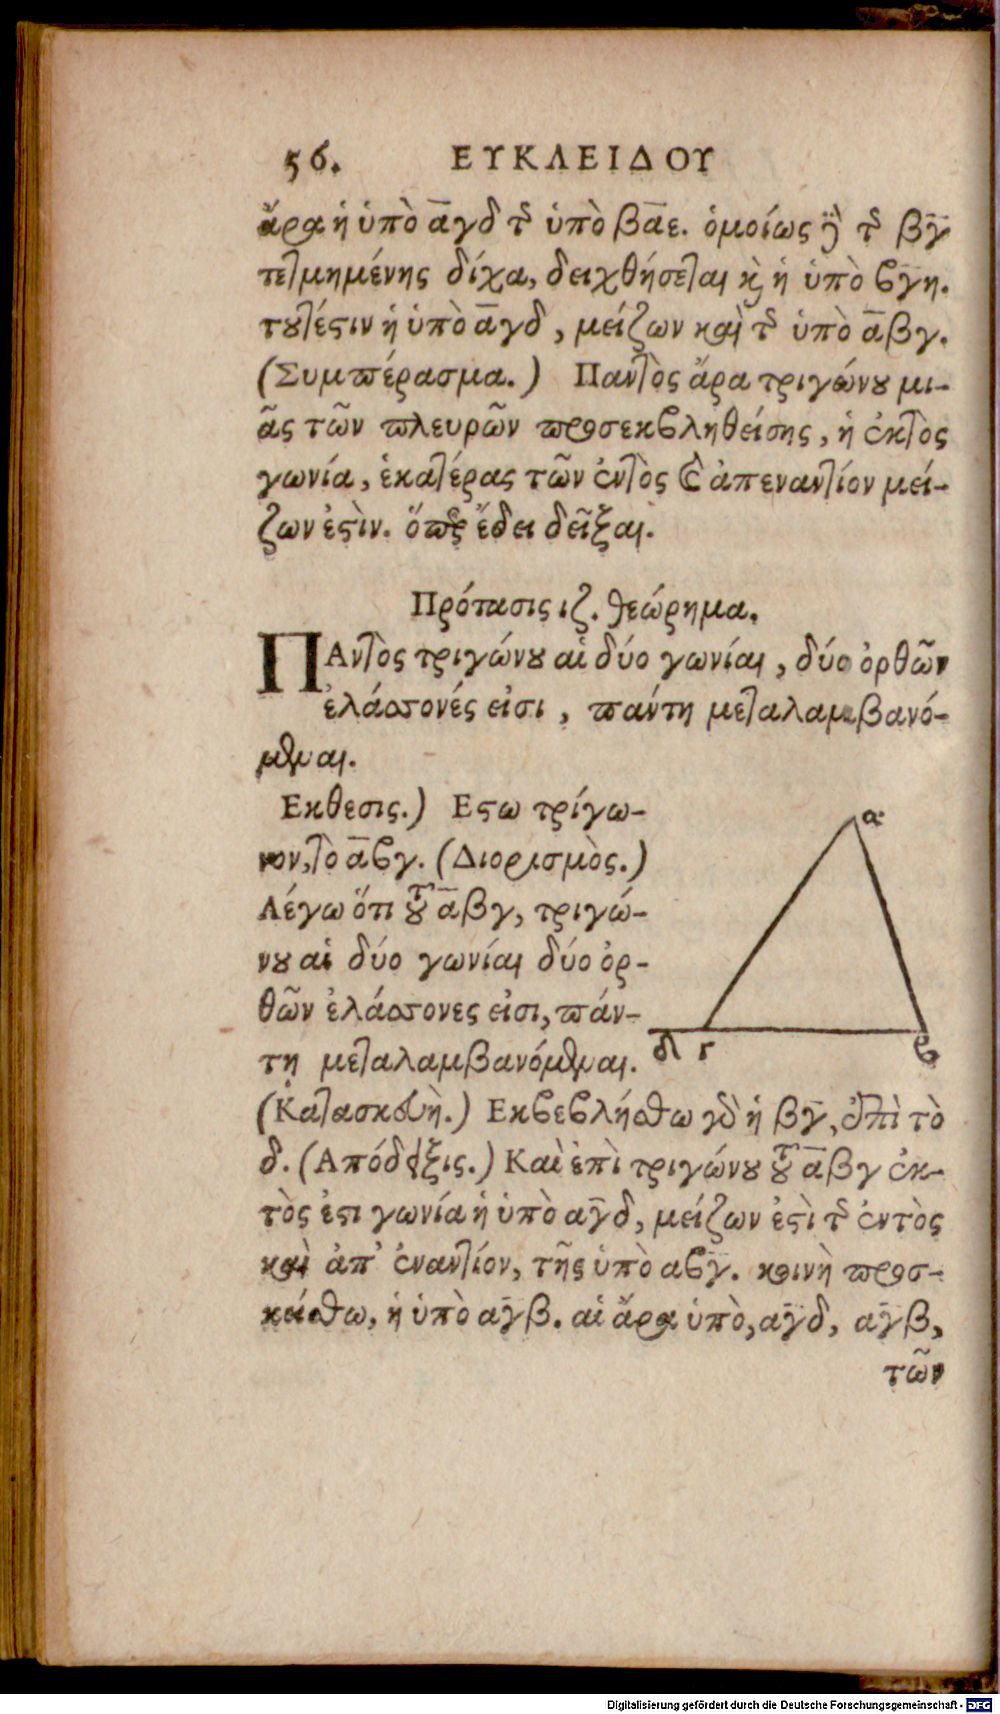 56. ΕΥΚΛΕΙΔΟΥ
ἄρα ἡ ὑπὸ α̅γδ τῆς ὑπὸ βα̅ε. ὁμοίως δὴ τῆς βγ̅
τετμημένης δίχα, δειχθήσεται καὶ ἡ ὑπὸ βγ̅η.
τουτέστιν ἡ ὑπὸ α̅γδ, μείζων καὶ τῆς ὑπὸ α̅βγ.
(Συμπέρασμα.) Παντὸς ἄρα τριγώνου μι-
ᾶς τῶν πλευρῶν προσεκβληθείσης, ἡ ἐκτὸς
γωνία, ἑκατέρας τῶν ἐντὸς καὶ ἀπεναντίον μεί-
ζων ἐστὶν. ὅπερ ἔδει δεῖξαι.
Πρότασις ιζ. θεώρημα.
ΠΑντὸς τριγώνου αἱ δύο γωνίαι, δύο ὀρθῶν
ἐλάσσονές εἰσι, πάντη μεταλαμβανό-
μεναι.
Εκθεσις.) Εστω τρίγω-
νον, τὸ α̅βγ. (Διορισμὸς.)
Λέγω ὅτι τοῦ α̅βγ, τριγώ-
νου αἱ δύο γωνίαι δύο ὀρ-
θῶν ἐλάσσονες εἰσι, πάν-
τη μεταλαμβανόμεναι.
(Κατασκευὴ.) Εκβεβλήσθω γὸ ἡ βγ̅, ἐπὶ τὸ
δ. (Απόδειξις.) Καὶ ἐπὶ τριγώνου τοῦ α̅βγ ἐκ-
τὸς ἐστι γωνία ἡ ὑπὸ αγ̅δ, μείζων ἐστὶ τῆς ἐντὸς
καὶ ἀπ' ἐναντίον, τῆς ὑπὸ αβγ̅. κοινὴ προσ-
κείσθω, ἡ ὑπὸ αγ̅β. αἱ ἄρα ὑπὸ, αγ̅δ, αγ̅β,
τῶν
α
δ γ β
Digitalisierung gefördert durch die Deutsche Forschungsgemeinschaft - DFG